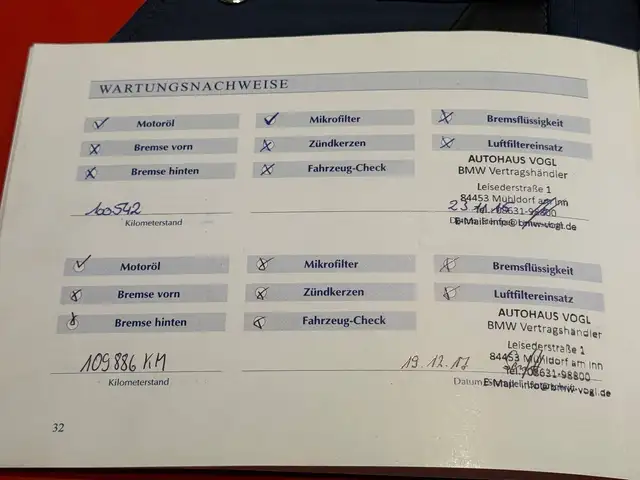 WARTUNGSNACHWEISE
Motoröl Mikrofilter Bremsflüssigkeit
Bremse vorn Zündkerzen Luftfiltereinsatz
Bremse hinten Fahrzeug-Check
AUTOHAUS VOGL
BMW Vertragshändler
Leisederstraße 1
84453 Mühldorf am Inn
Tel.: 08631-98800
E-Mail: info@bmw-vogl.de
100542
Kilometerstand
Motoröl Mikrofilter Bremsflüssigkeit
Bremse vorn Zündkerzen Luftfiltereinsatz
Bremse hinten Fahrzeug-Check
AUTOHAUS VOGL
BMW Vertragshändler
Leisederstraße 1
84453 Mühldorf am Inn
Tel.: 08631-98800
E-Mail: info@bmw-vogl.de
109886 KM 19.12.17
Kilometerstand Datum
32